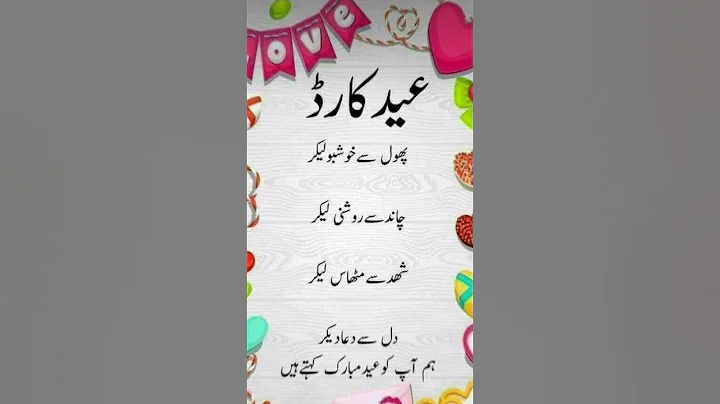 OVE
عید کارڈ
پھول سے خوشبو لیکر
چاند سے روشنی لیکر
شھد سے مٹھاس لیکر
دل سے دعا دیکر
ہم آپ کو عید مبارک کہتے ہیں